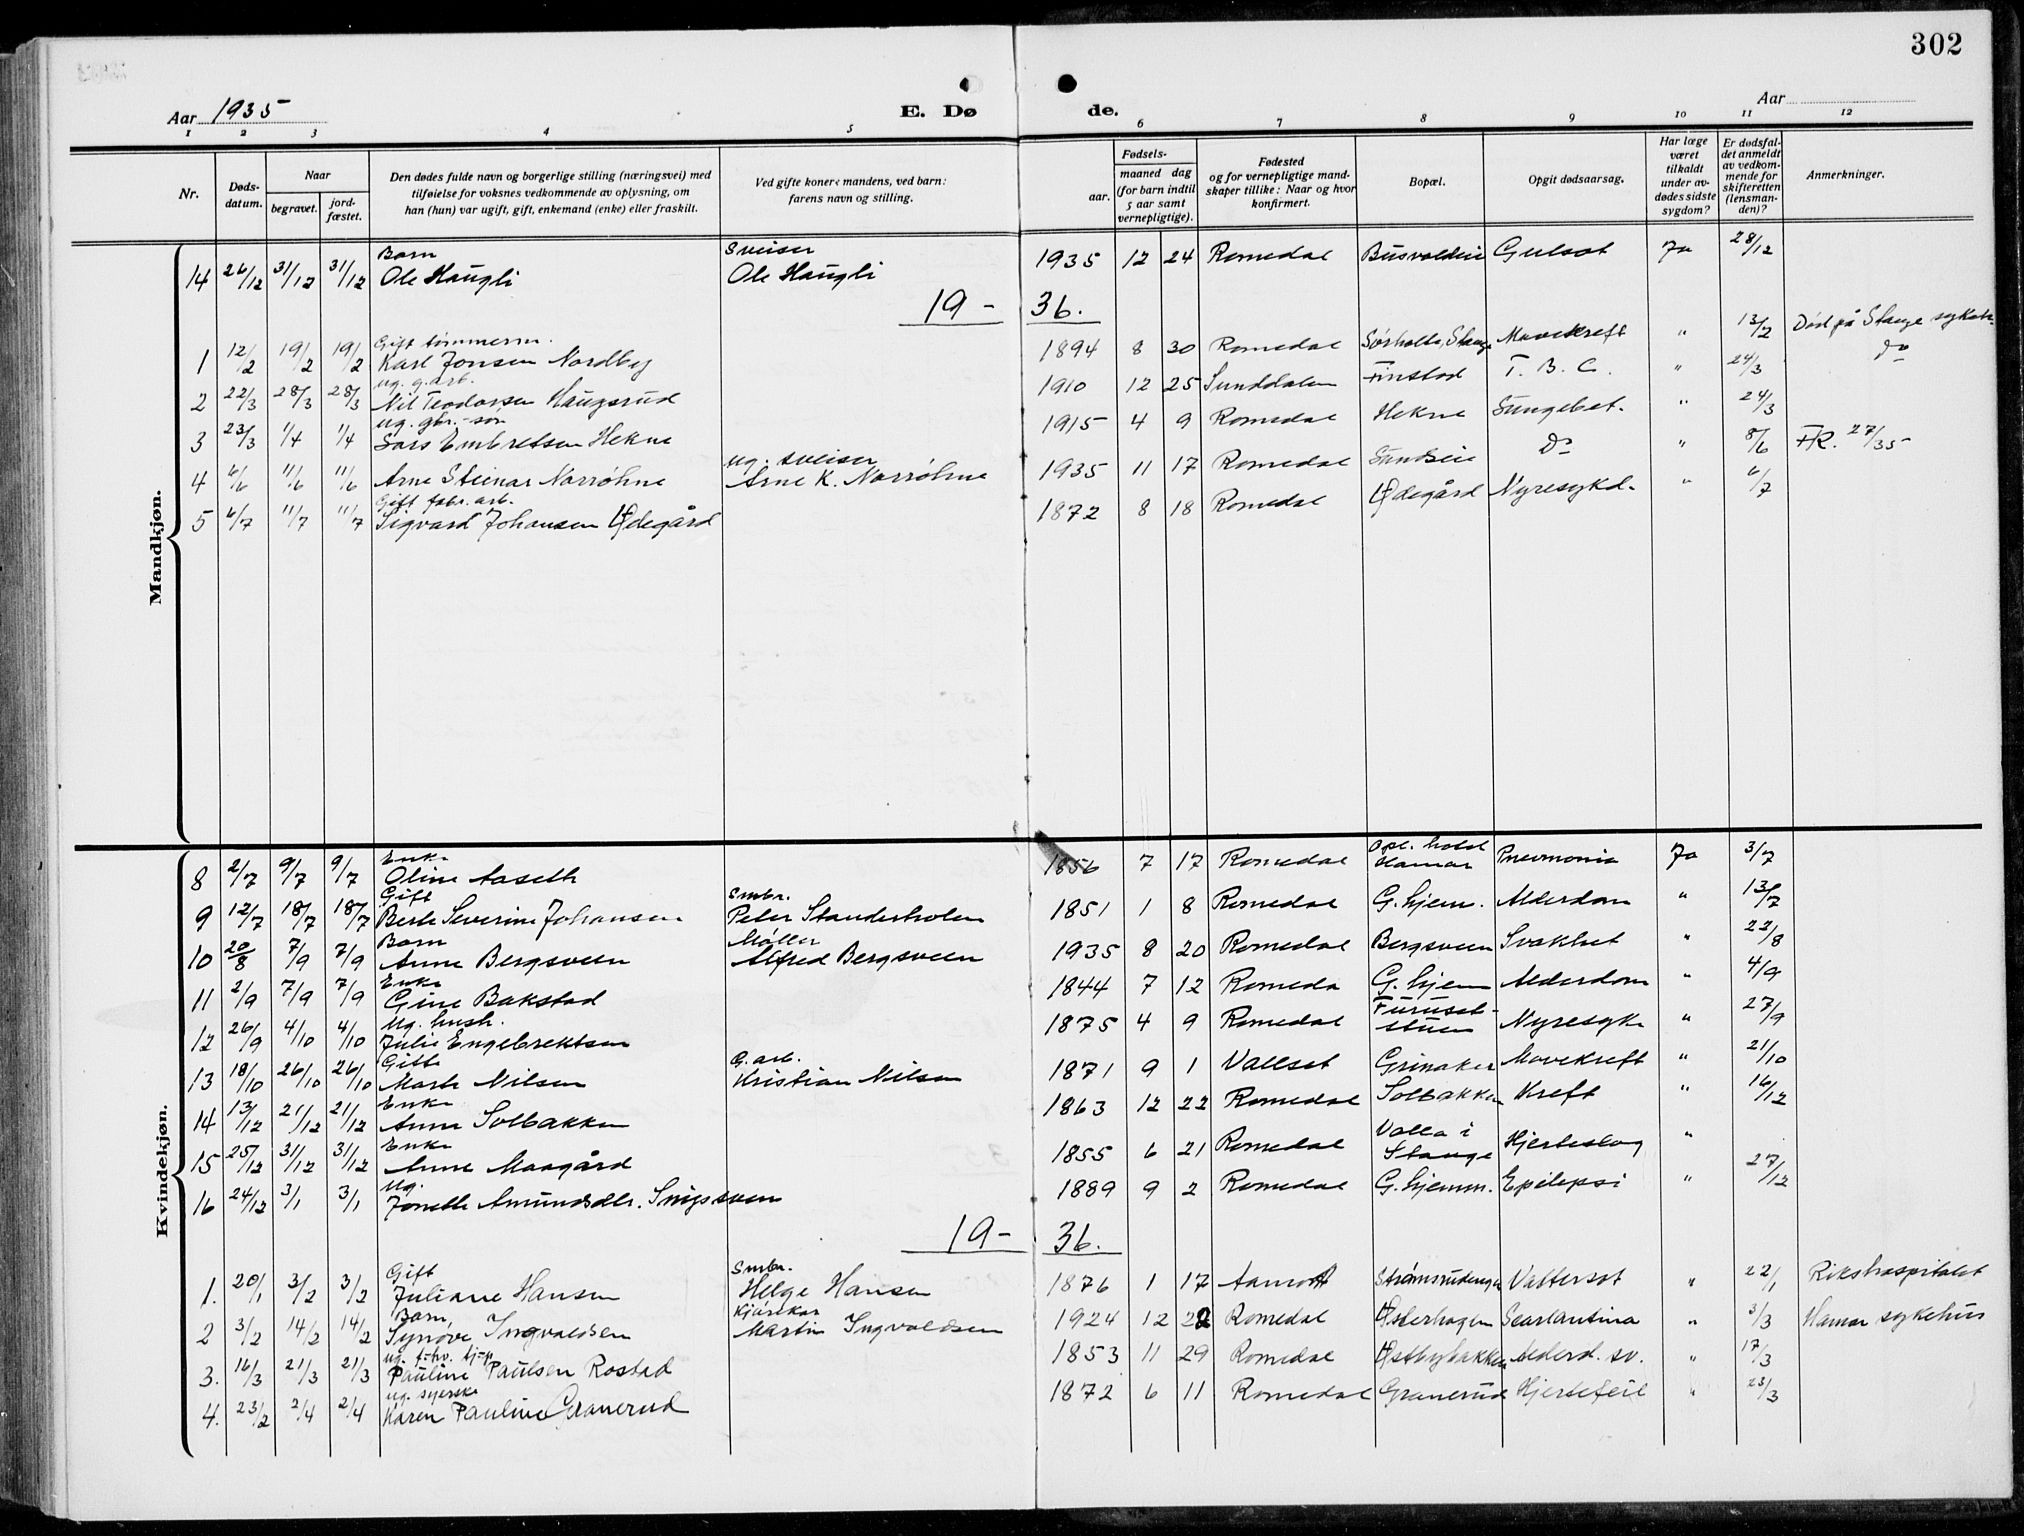 302
Aar 1935
E. Dø de.
Aar
1 2 3 4 5 6 7 8 9 10 11 12
Nr.
Døds-datum.
Naar
begravet.
jord-fæstet.
Den dødes fulde navn og borgerlige stilling (næringsvei) med
tilføielse for voksnes vedkommende av oplysning, om
han (hun) var ugift, gift, enkemand (enke) eller fraskilt.
Ved gifte koner: mandens, ved barn:
farens navn og stilling.
Fødsels-
aar. maaned dag
(for barn indtil
5 aar samt
vernepligtige).
Fødested
og for vernepligtige mand-
skaper tillike: Naar og hvor
konfirmert.
Bopæl.
Opgit dødsaarsag.
Har læge
været
tilkaldt
under av-
dødes sidste
sygdom?
Er dødsfal-
det anmeldt
av vedkom-
mende for
skifteretten
(lensman-
den)?
Anmerkninger.
Mandkjøn.
Barn Sveiser
14 26/12 31/12 31/12 Ole Haugli Ole Haugli 1935 12 24 Romedal Gulsot Ja 28/12
19 - 36.
Gift tømmerm.
1 12/2 19/2 19/2 Karl Jonsen Nordby 1894 8 30 Romedal Sørholte, Stange Mavekreft " 13/2 Død på Stange sykeh.
ug. g.arb.
2 22/3 28/3 28/3 Nil Teodorsen Haugsrud 1910 12 25 Sunddalen Finstad T. B. C. " 24/3 do
ug. gbr.-søn
3 23/3 1/4 1/4 Lars Embretsen Hekne 1915 4 9 Romedal Hekne Lungebet. " 24/3
ug. sveiser
4 6/6 11/6 11/6 Arne Steinar Norrøhne Arne K. Norrøhne 1935 11 17 Romedal Do " 8/6 FR. 27/35
Gift fabr. arb.
5 6/7 11/7 11/7 Sigvard Johansen Ødegård 1872 8 18 Romedal Ødegård Nyresykd. " 6/7
Kvindekjøn.
Enke Opl. hotel
8 2/7 9/7 9/7 Oline Aaseth 1856 7 17 Romedal Hamar Pnevmonia Ja 3/7
Gift Smbr.
9 12/7 18/7 18/7 Berte Severine Johansen Peter Standerholen 1851 1 8 Romedal G. hjem. Alderdom " 13/7
Barn Møller
10 20/8 7/9 7/9 Anne Bergsveen Alfred Bergsveen 1935 8 20 Romedal Bergsveen Svakhet " 22/8
Enke
11 2/9 7/9 7/9 Gine Bakstad 1844 7 12 Romeda G. hjem Alderdom " 4/9
Ug. hush. Furuset-
12 26/9 4/10 4/10 Julie Engebrektsen 1875 4 9 Romedal stuen Nyresyk. " 27/9
Gift G. arb.
13 18/10 26/10 26/10 Marte Nilsen Kristian Nilsen 1871 9 1 Vallset Grinaker Mavekreft " 21/10
Enke
14 13/12 21/12 21/12 Anne Solbakken 1863 12 22 Romedal Solbakken Kreft " 16/12
Enke Valla i
15 25/12 31/12 31/12 Anne Maagård 1855 6 21 Romedal Stange Hjerteslag "
Ug.
16 24/12 3/1 3/1 Jonette Amundsdtr. Snigssveen 1889 9 2 Romedal G. hjemm. Epilepsi " 27/12
19 - 36.
Gift Smbr.
1. 20/1 3/2 3/2 Juliane Hansen Helge Hansen 1876 1 17 Aamot Strømsrudengen Vattersot " 22/1 Rikshospitalet
Barn Kjørekar
2 3/2 14/2 14/2 Synøve Ingvaldsen Martin Ingvaldsen 1924 12 22 Romedal Østerhagen Scarlantina " 3/3 Hamar sykehus
ug. f-hv. tj-p
3. 16/3 21/3 21/3 Pauline Paulsen Rostad 1853 11 29 Romedal Østbybakken Alderd. sv. " 17/3
ug. syerske
4. 23/2 2/4 2/4 Karen Pauline Granerud 1872 6 11 Romedal Granerud Hjertefeil " 23/3